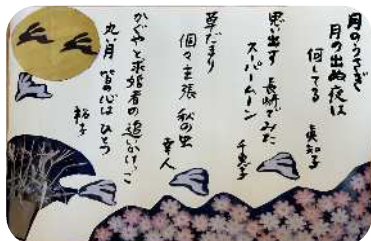 月のうさぎ
月の出ぬ夜は
何してる
眞知子
思い出す 長崎でみた
スーパームーン
千恵子
草だまり
個々主張 秋の虫
幸人
かぐやと求婚者の追いかけっこ
丸い月 皆の心は ひとつ
裕子